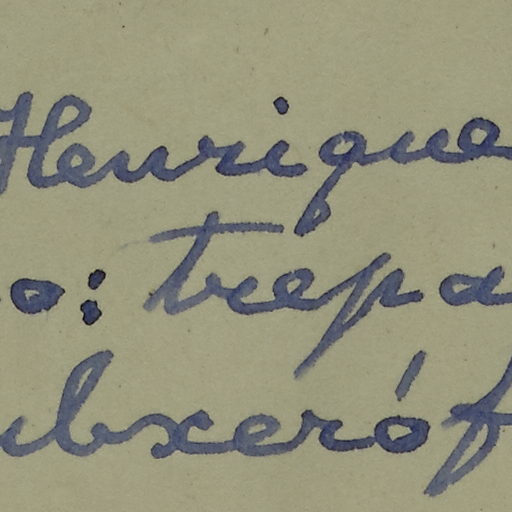 Henrique
o: trepa
ubxeróf